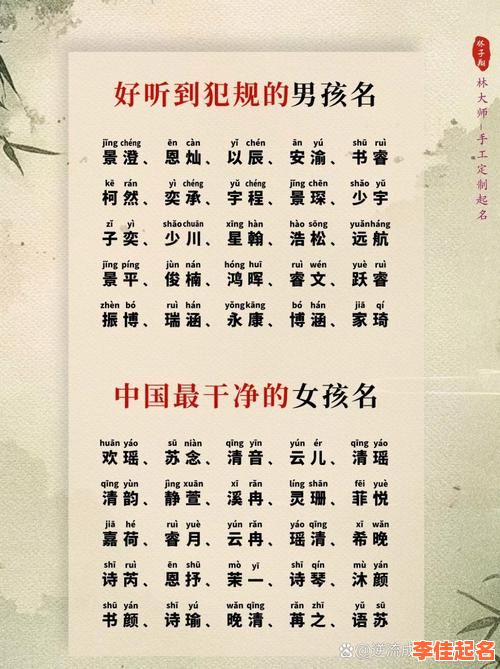 林子翔
林大师—手工定制起名
好听到犯规的男孩名
jǐng chéng ēn càn yǐ chén ān yú shū ruì
景澄、恩灿、以辰、安渝、书睿
kē rán yì chéng yǔ chéng jǐng chēn shào yǔ
柯然、奕承、宇程、景琛、少宇
zǐ yì shǎo chuān xīng hàn hào sōng yuǎn háng
子奕、少川、星翰、浩松、远航
jǐng píng jùn nán hóng huī ruì wén yuè ruì
景平、俊楠、鸿晖、睿文、跃睿
zhèn bó ruì hán yǒng kāng bó hán jiā qí
振博、瑞涵、永康、博涵、家琦
中国最干净的女孩名
huān yáo sū niàn qīng yīn yún ér qīng yáo
欢瑶、苏念、清音、云儿、清瑶
qīng yùn jìng xuān xī rǎn líng shān fēi yuè
清韵、静萱、溪冉、灵珊、菲悦
jiā hé ruì yuè yún rǎn yáo qīng xī wǎn
嘉荷、睿月、云冉、瑶清、希晚
shī ruì ēn shū mò yī shī qín mù yán
诗芮、恩抒、茉一、诗琴、沐颜
shū yán shī yú wǎn qīng rǎn zhī yǔ sū
书颜、诗瑜、晚清、苒之、语苏
李佳起名